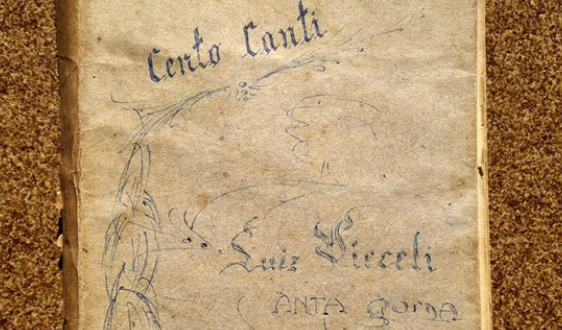 Cento Canti
Luiz Vieceli
ANTA gorda